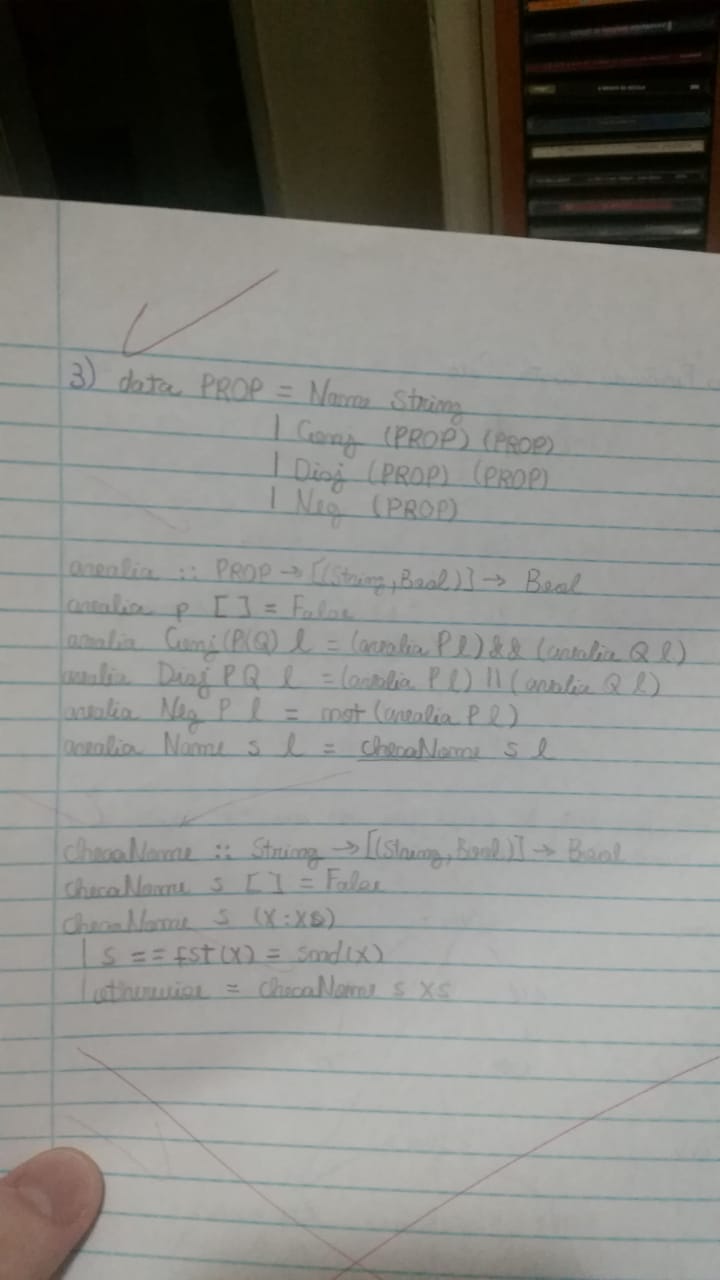 3) data PROP = Name String
| Conj (PROP) (PROP)
| Disj (PROP) (PROP)
| Neg (PROP)
avalia :: PROP → [(String, Bool)] → Bool
avalia p [] = False
avalia Conj (P(Q) l = (avalia P l) && (avalia Q l)
avalia Disj P Q l = (avalia P l) || (avalia Q l)
avalia Neg P l = not (avalia P l)
avalia Name s l = checaName s l
checaName :: String → [(String, Bool)] → Bool
checaName s [] = False
checaName s (x:xs)
| s == fst(x) = snd(x)
| otherwise = checaName s xs